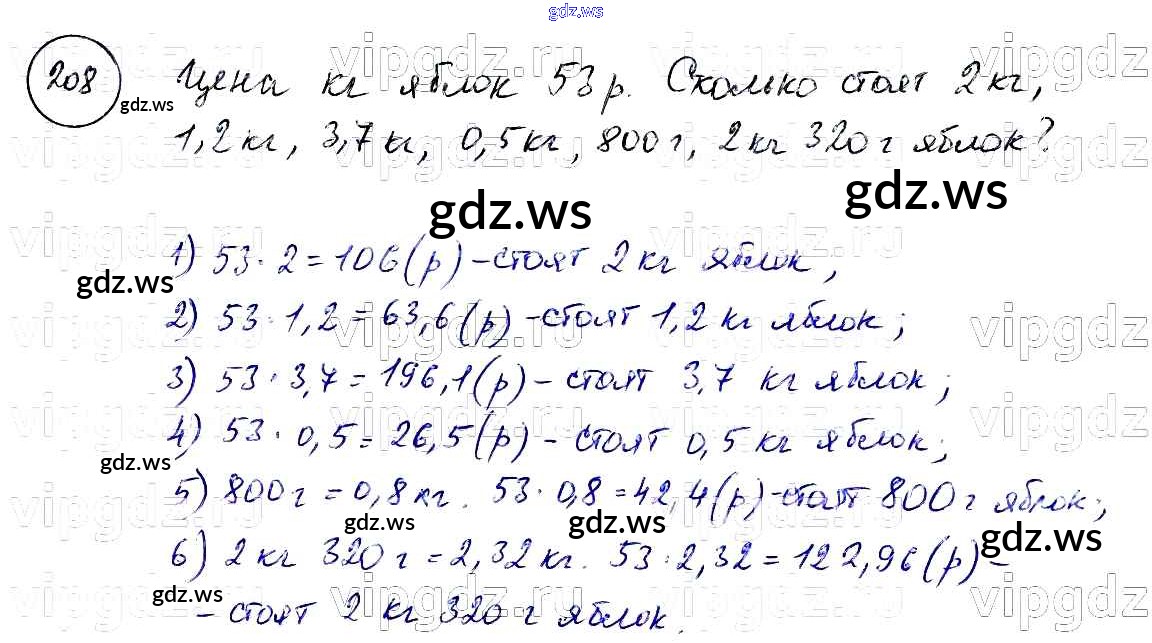 gdz.ws
208 Цена кг яблок 53 р. Сколько стоят 2 кг,
gdz.ws
1,2 кг, 3,7 кг, 0,5 кг, 800 г, 2 кг 320 г яблок?
gdz.ws
gdz.ws
1) 53 · 2 = 106 (р) – стоят 2 кг яблок,
gdz.ws
2) 53 · 1,2 = 63,6 (р) – стоят 1,2 кг яблок;
3) 53 · 3,7 = 196,1 (р) – стоят 3,7 кг яблок;
4) 53 · 0,5 = 26,5 (р) – стоят 0,5 кг яблок;
gdz.ws
5) 800 г = 0,8 кг. 53 · 0,8 = 42,4 (р) – стоят 800 г яблок;
gdz.ws gdz.ws gdz.ws
6) 2 кг 320 г = 2,32 кг. 53 · 2,32 = 122,96 (р) –
gdz.ws
– стоят 2 кг 320 г яблок.
vipgdz.ru vipgdz.ru vipgdz.ru vipgdz
vipgdz.ru vipgdz.ru vipgdz.ru vipgdz
vipgdz.ru vipgdz.ru vipgdz.ru vipgdz
vipgdz.ru vipgdz.ru vipgdz.ru vipgdz
vipgdz.ru vipgdz.ru vipgdz.ru vipgdz
vipgdz.ru vipgdz.ru vipgdz.ru vipgdz
vipgdz.ru vipgdz.ru vipgdz.ru vipgdz